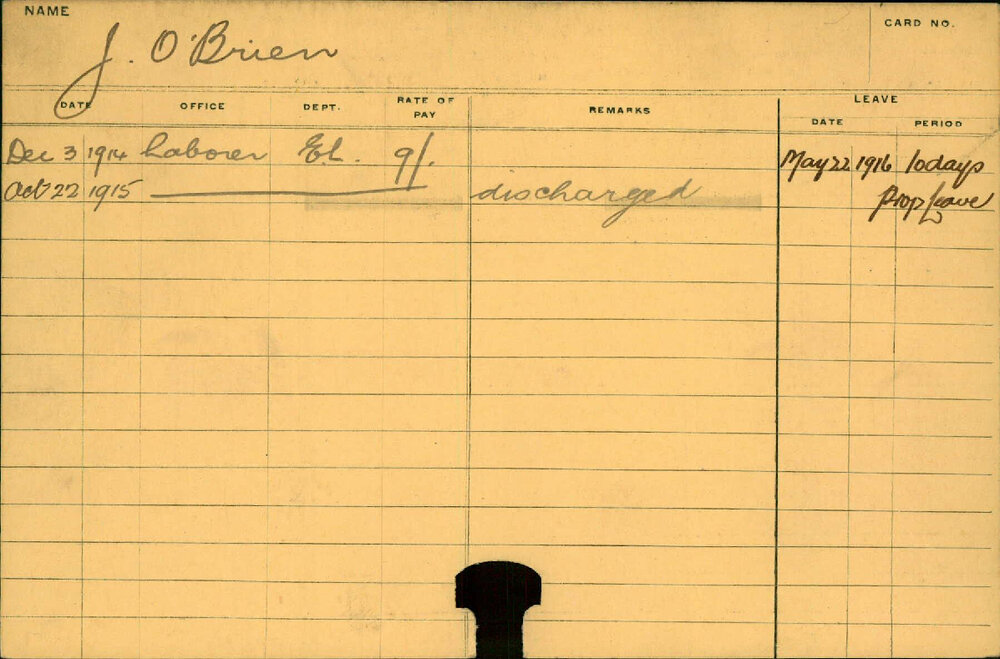 NAME
CARD NO.
J. O'Brien
DATE OFFICE DEPT. RATE OF PAY REMARKS LEAVE
DATE PERIOD
Dec 3 1914 Laborer EL. 9/. May 22 1916 10 days
Oct 22 1915 discharged Prop Leave